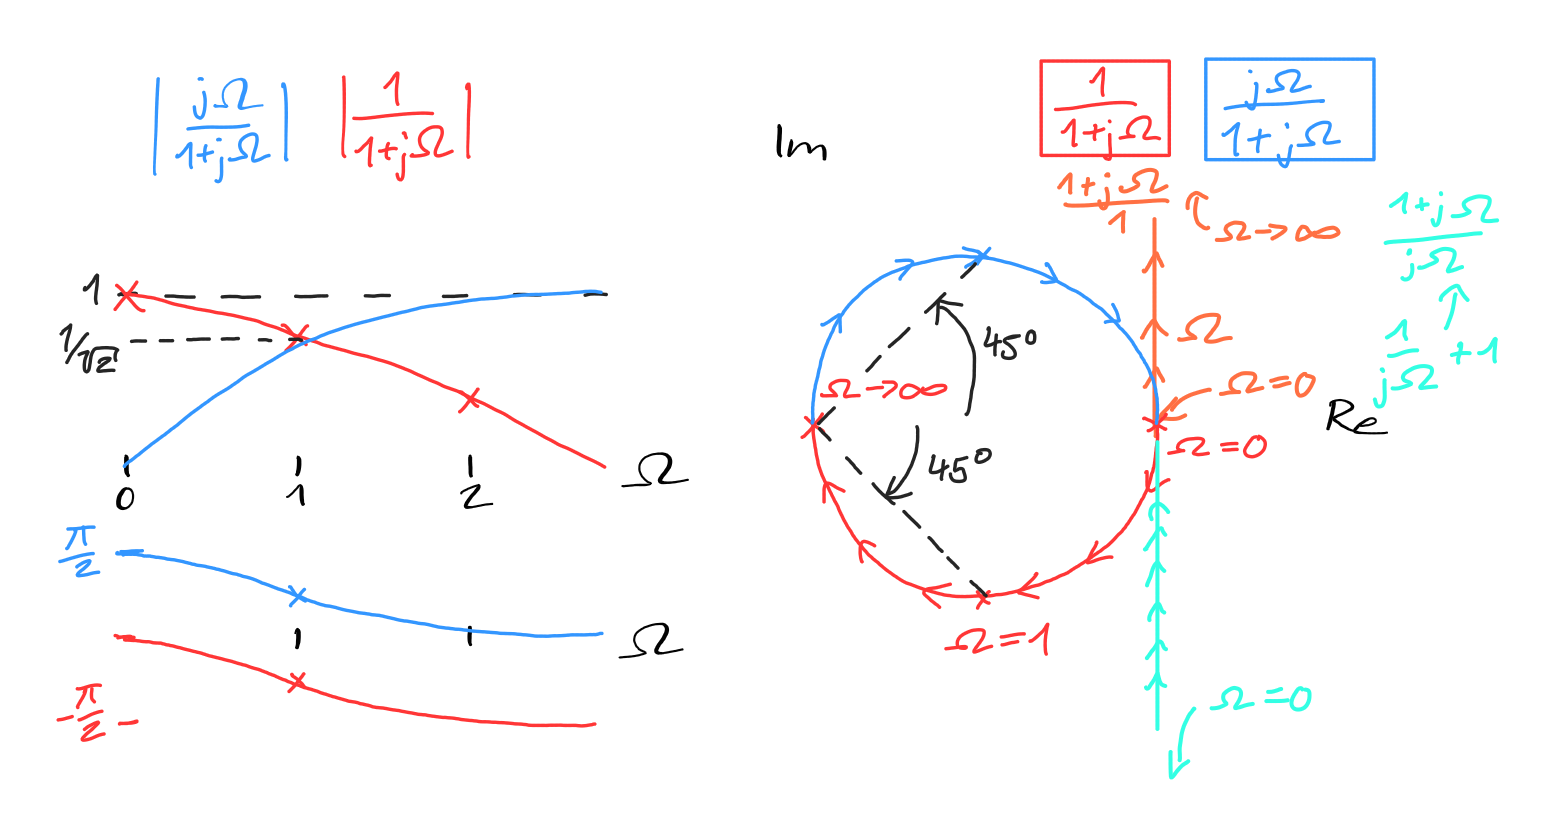 |jΩ/(1+jΩ)| |1/(1+jΩ)|
1
1/√2
0 1 2 Ω
π/2
Ω
-π/2
Im
1/(1+jΩ) jΩ/(1+jΩ)
(1+jΩ)/1 Ω→∞
(1+jΩ)/jΩ
Ω
1/jΩ + 1
45°
Ω→∞
Ω=0
Re
Ω=0
45°
Ω=1
Ω=0